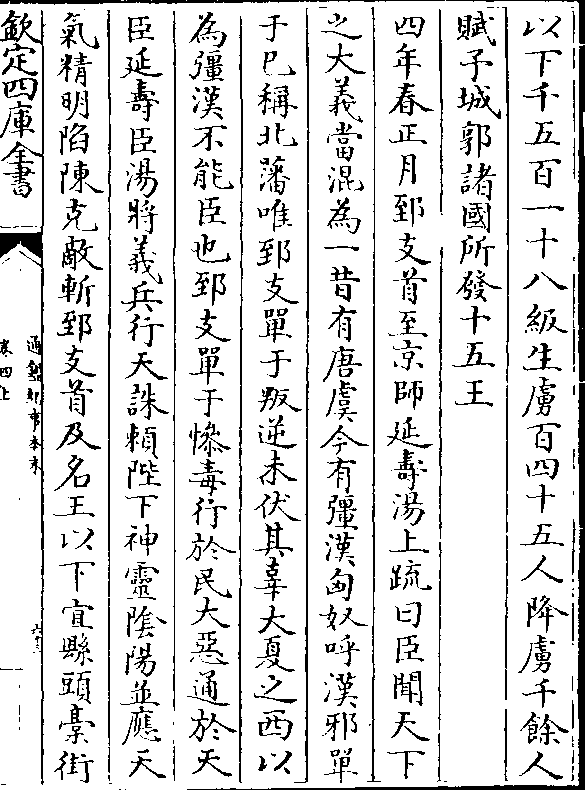 以下千五百一十八級生虜百四十五人降虜千餘人
賦予城郭諸國所發十五王
四年春正月郅支首至京師延壽湯上疏曰臣聞天下
之大義當混為一昔有唐虞今有彊漢匈奴呼漢邪單
于已稱北藩唯郅支單于叛逆未伏其辜大夏之西以
為彊漢不能臣也郅支單于慘毒行於民大惡通於天
臣延壽臣湯將義兵行天誅頼陛下神靈陰陽並應天
氣精明陷陳克敵斬郅支首及名王以下宜縣頭藁街
欽定四庫全書
通鑑紀事本末
卷四上